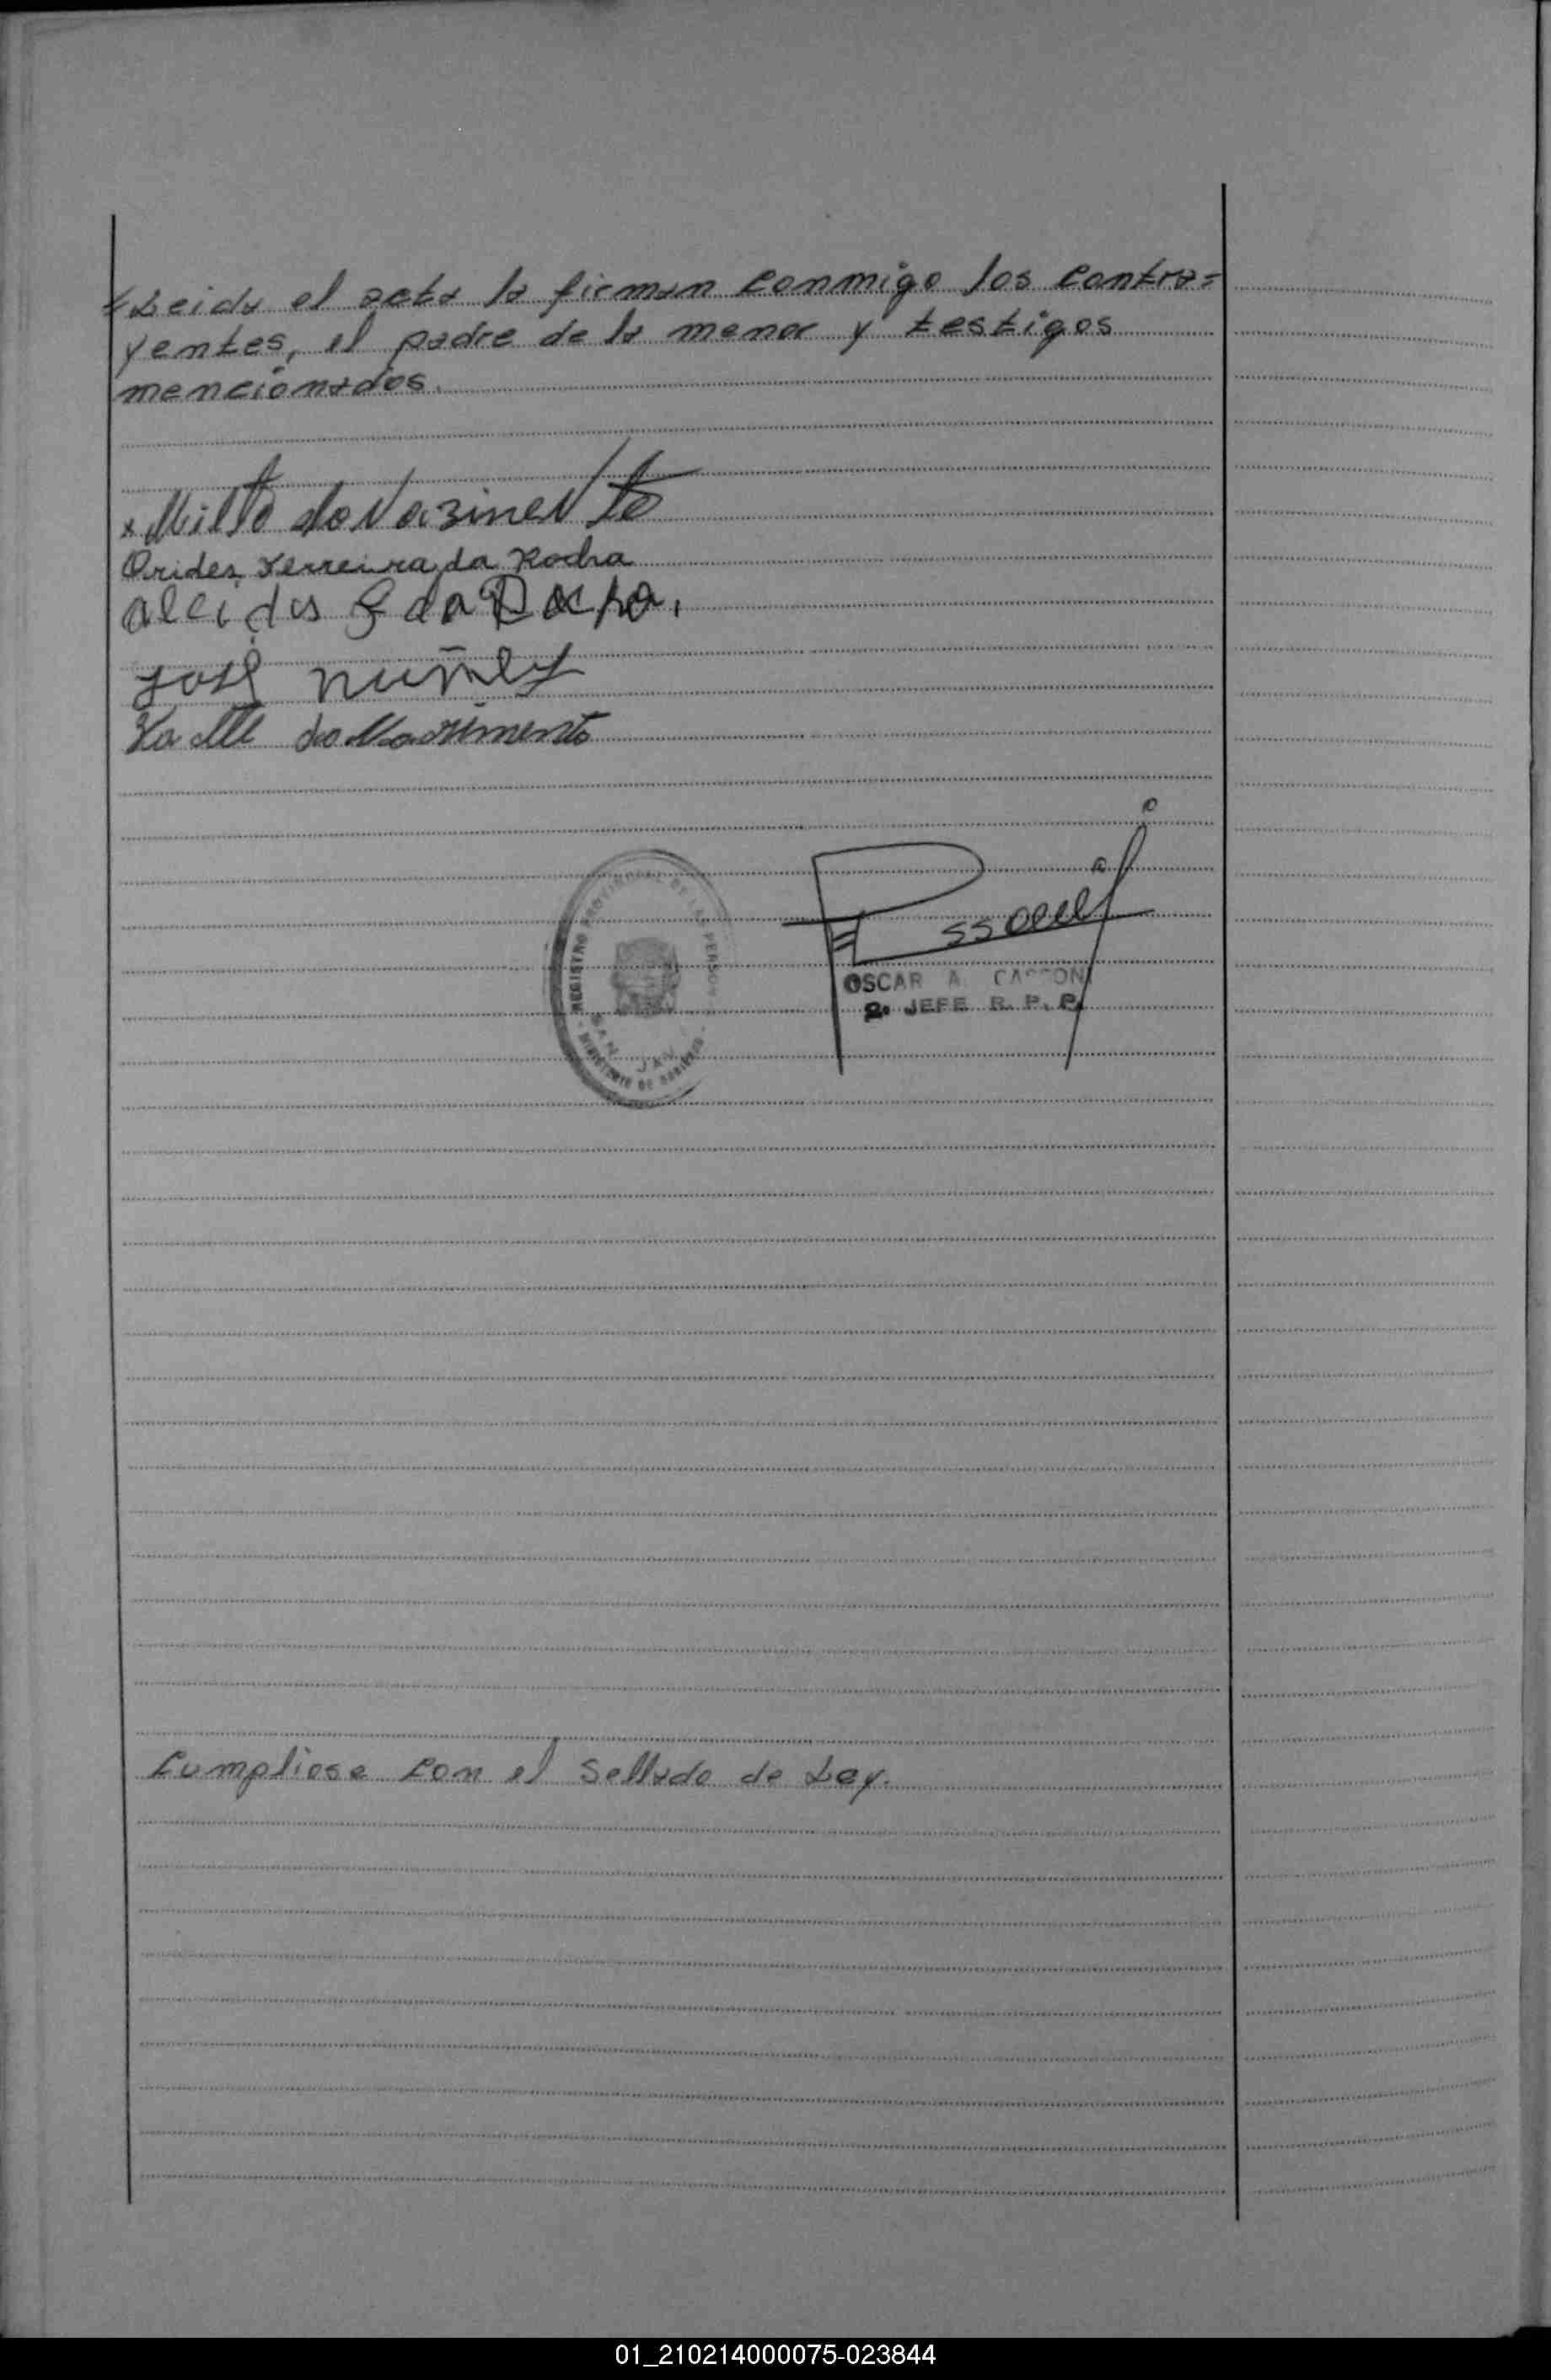 Leida el acta la firman conmigo los contra=
yentes, el padre de la menor y testigos
mencionados.
x Milto do Nazinento
Orides Ferreira da Rocha
Alcides F da Rocha.
José nuñez
do Nascimento
REGISTRO PROVINCIAL DE LAS PERSONAS
SAN JAV
MINISTERIO DE GOBIERNO
OSCAR A.
2º JEFE R. P. P.
Cumpliose con el Sellado de Ley.
01_210214000075-023844